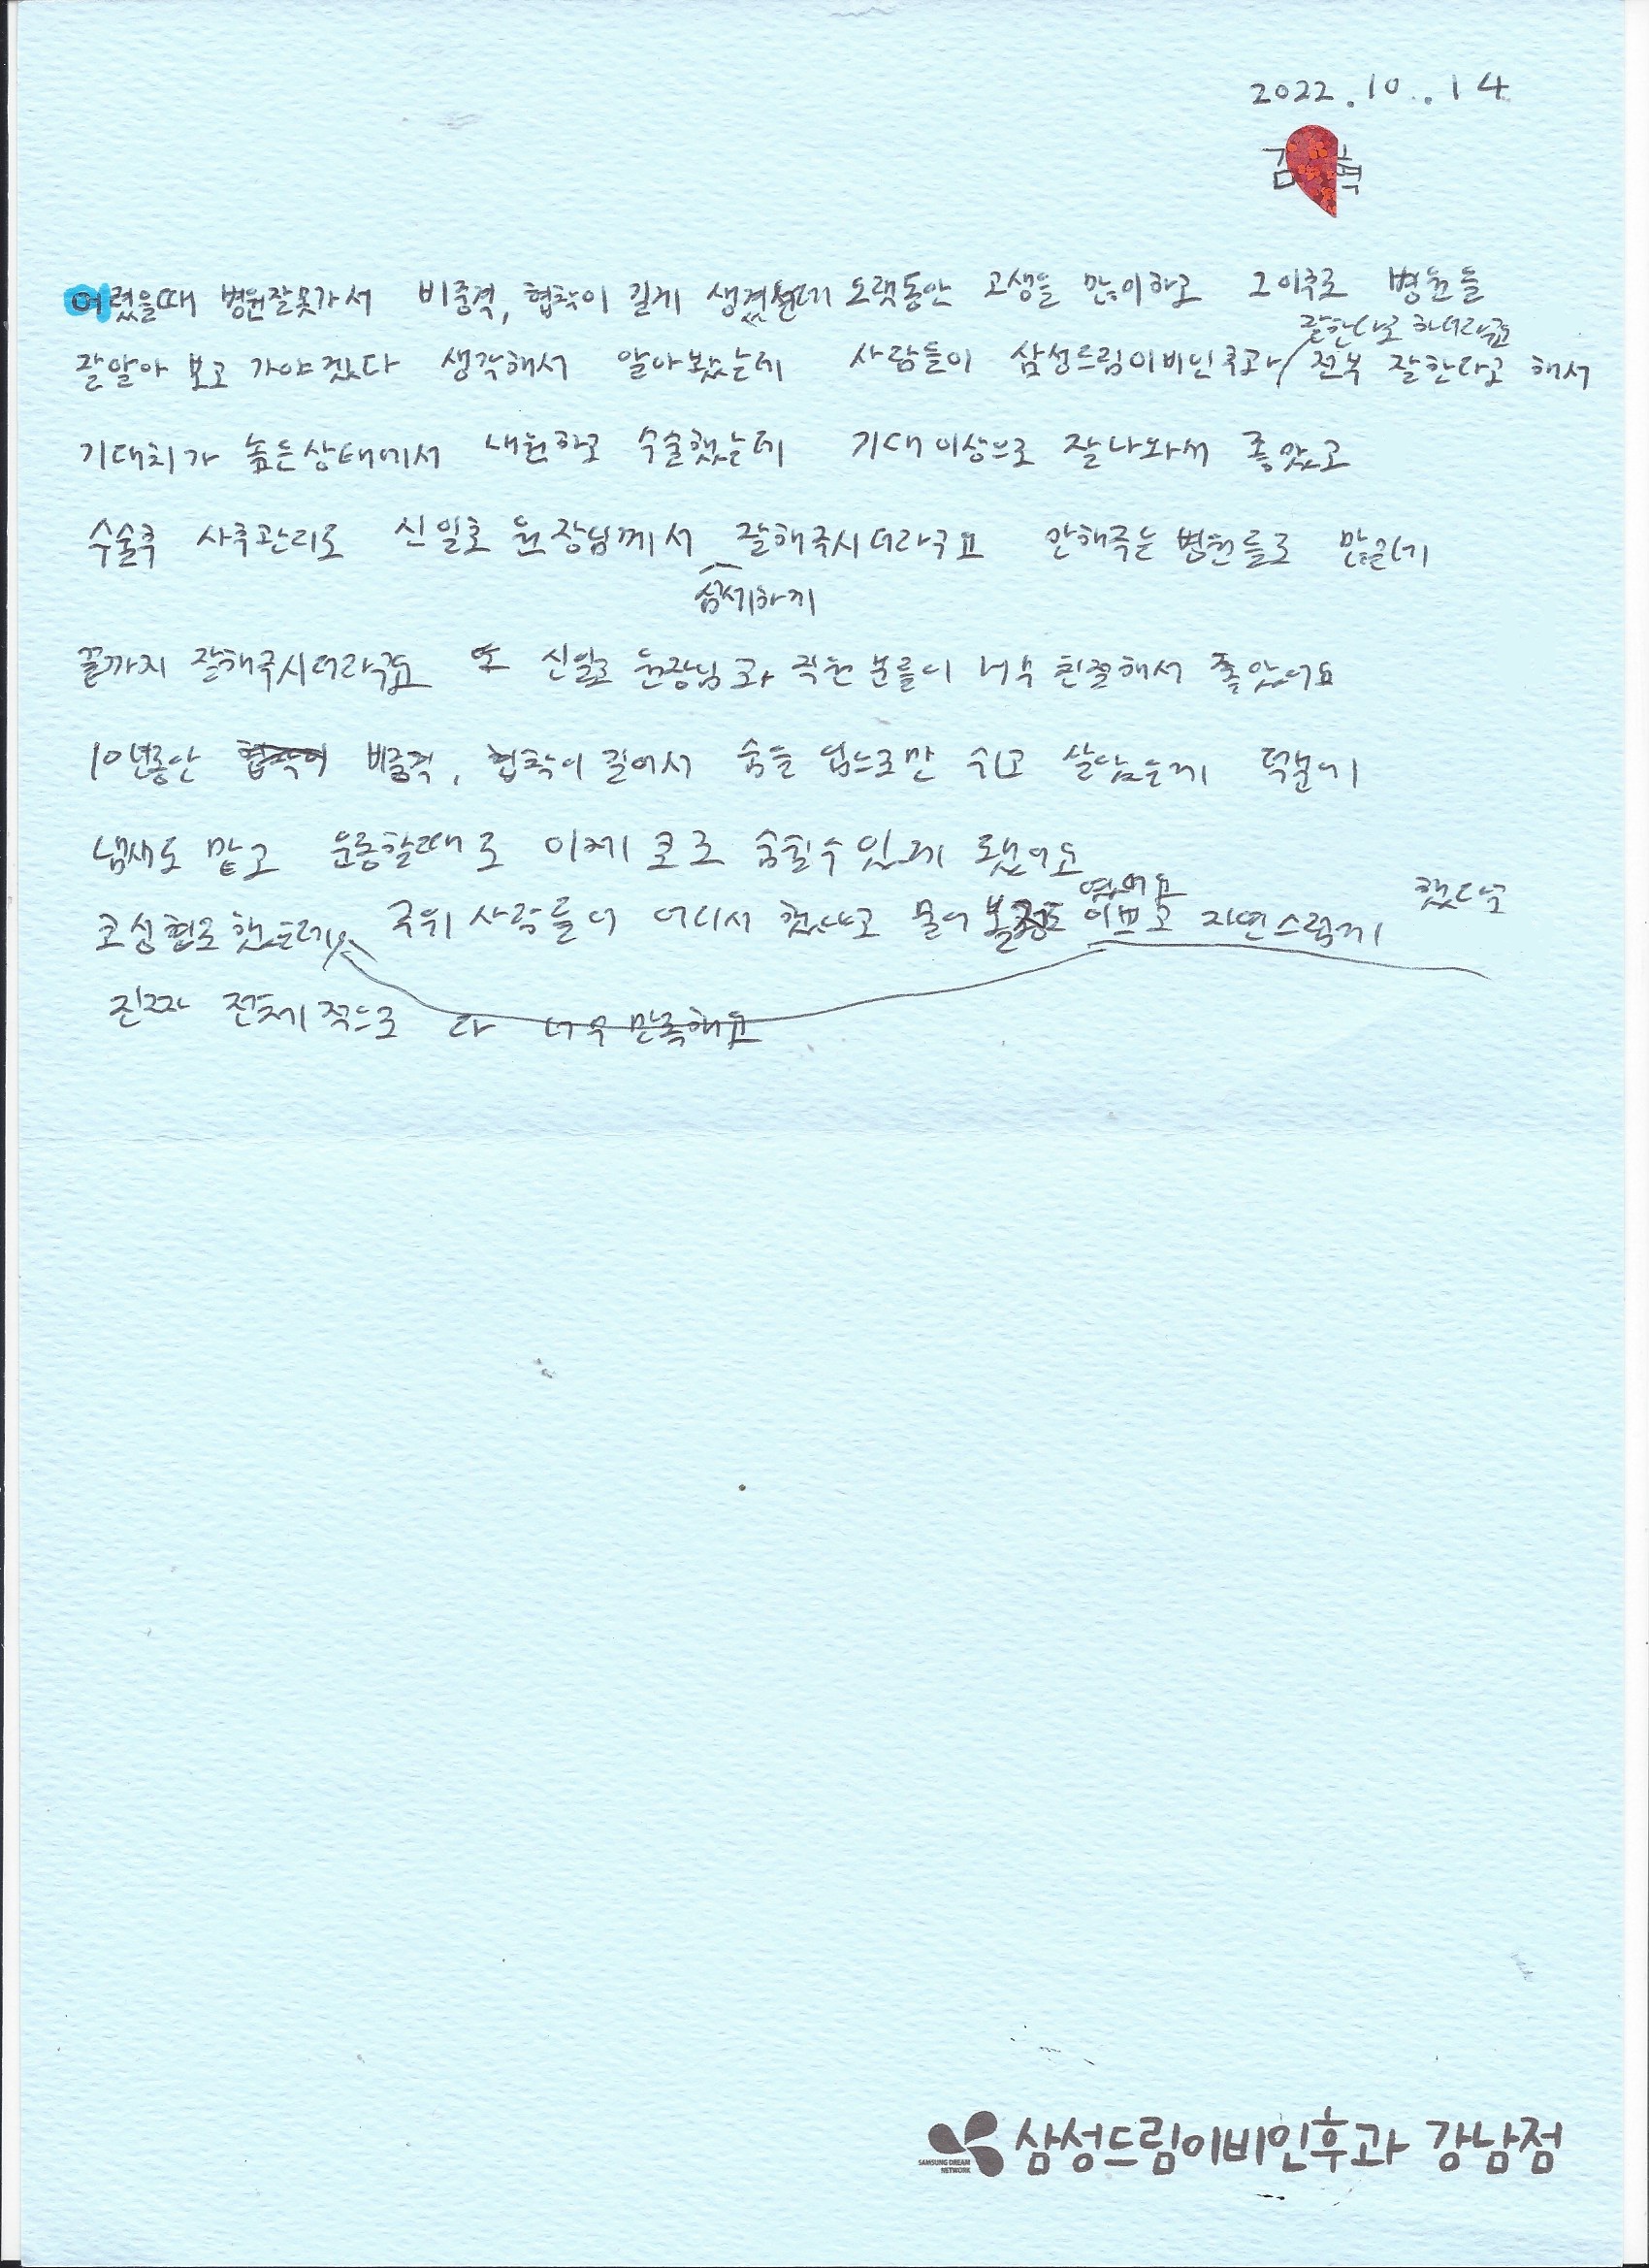 2022.10..14
김 혁
어렸을때 병원잘못가서 비중격, 협착이 길게 생겼는데 오랫동안 고생을 많이하고 그이후로 병원을
잘한다고 하더라고요
잘알아 보고 가야겠다 생각해서 알아봤는데 사람들이 삼성드림이비인후과/ 전부 잘한다고 해서
기대치가 높은상태에서 내원하고 수술했는데 기대 이상으로 잘나와서 좋았고
수술후 사후관리도 신일호 원장님께서 잘해주시더라구요 안해주는 병원들도 많은데
섬세하게
끝까지 잘해주시더라구요 또 신일호 원장님과 직원분들이 너무 친절해서 좋았어요
10년동안 비중격, 협착이 길어서 숨을 입으로만 쉬고 살았는데 덕분에
냄새도 맡고 운동할때도 이제 코로 숨쉴수있게 됐어요
했다고
코성형도 했는데 주위 사람들이 어디서 했냐고 물어볼정도 이쁘고 자연스럽게
진짜 전체적으로 다 너무 만족해요
SAMSUNG DREAM NETWORK 삼성드림이비인후과 강남점